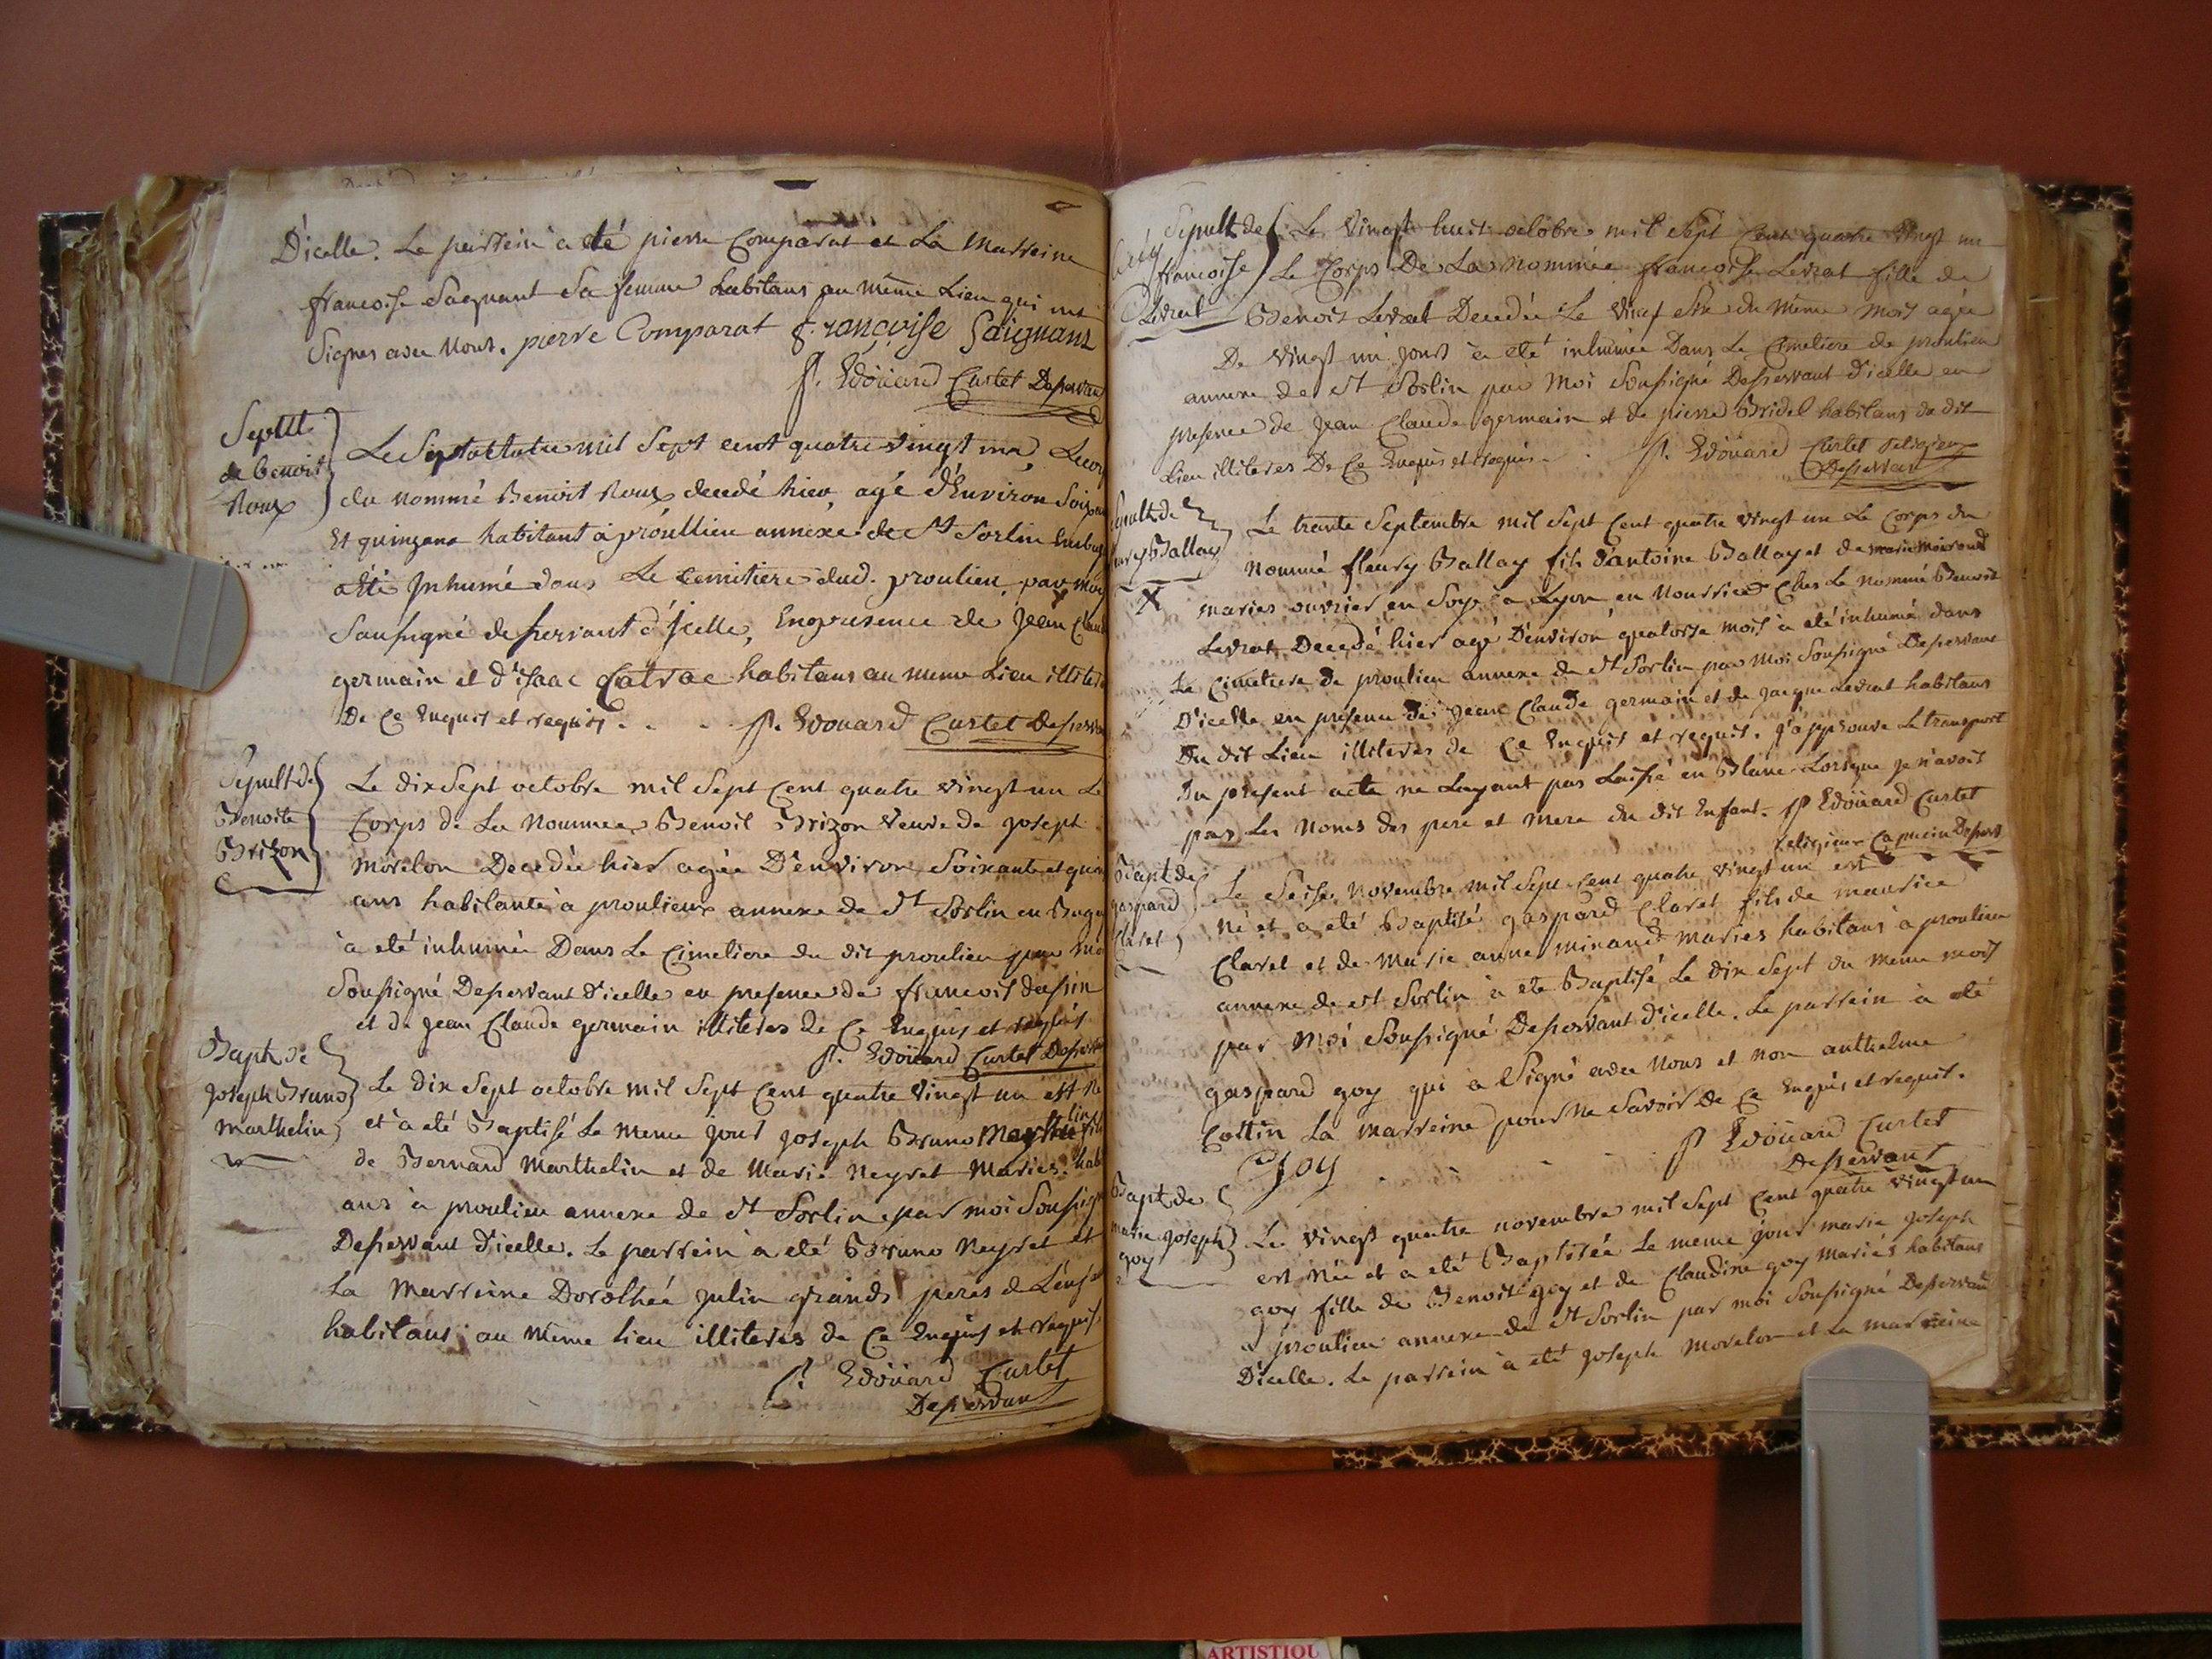 D'icelle. Le parrein a été pierre Comparat et La Marreine
francoise Sagnant Sa femme habitans au même Lieu qui ont
Signés avec Nous. pierre Comparat françoise Saignant
p. Edoüard Curtet Deservant
Sepult
de benoit
Roux
Le Sept octobre mil Sept cent quatre vingt un, Le corps
du nommé Benoit Roux decedé hier, agé d'Environ Soixante
Et quinzans habitant à proullieu annexe de St Sorlin En bugey
a été Inhumé dans Le Cemitiere dud. proulieu, par moy
Sousigné deservant d'Icelle, En presence de Jean Claude
germain et d'isaac Catrac habitans au meme Lieu illiteres
De Ce Enquis et requis . . . p. Edouard Curtet Deservant
Sepult de
Benoite
Brizon
Le dix Sept octobre mil Sept Cent quatre vingt un Le
Corps de La Nommée Benoit Brizon Veuve de joseph
Morelon Decedée hier agée D'environ Soixante et quinze
ans habitante à proulieux annexe de St Sorlin en Bugey
à été inhumée Dans Le Cimetiere du dit proulieu par moi
Sousigné Deservant d'icelle en presence de francois
et de jean Claude germain illiteres De Ce Enquis et requis
p. Edoüard Curtet Deservant
Bapt de
joseph Bruno
Marthelin
Le dix Sept octobre mil Sept Cent quatre vingt un est Né
et à été Baptisé Le meme jour joseph Bruno Marthelin fils
de Bernard Marthelin et de Marie Neyret Maries. habi
ans à proulieu annexe de St Sorlin par moi Sousigné
Deservant d'icelle. Le parrein à été Bruno Neyret et
La Marreine Dorothée julin grands peres de L'enfant
habitans au Même Lieu illiteres de Ce Enquis et requis
p. Edoüard Curtet
Deservant
Sepult de
francoise
Levrat
Le Vingt huit octobre mil Sept Cent quatre Vingt un
Le Corps De La Nommée francoise Levrat fille de
Benoit Levrat Decedée Le Vingt Six du Même Mois agée
De Vingt un jours à été inhumée Dans Le Cimetiere de proulieu
annexe de St Sorlin par Moi Sousigné Deservant d'icelle en
presence de jean Claude germain et de pierre Bridel habitans du dit
Lieu illiteres De Ce Enquis et requis . . p. Edoüard Curtet religieux
Deservant
Sepult de
fleury Ballay
X
Le trante Septembre mil Sept Cent quatre Vingt un Le Corps du
Nommé fleury Ballay fils d'antoine Ballay et de marie
maries ouvrier en Soye à Lyon en Nourrice Ches Le nommé Benoit
Levrat Decedé hier agé D'environ quatorse mois à été inhumé dans
Le Cimetiere de proulieu annexe de St Sorlin par Moi Sousigné Deservant
D'icelle en presence de jean Claude germain et de jacque Levrat habitans
Du dit Lieu illiteres de Ce Enquis et requis. j'approuve Le transport
Du present acte ne L'ayant pas Laissé en Blanc Lorsque je n'avois
pas Les Noms des pere et mere du dit Enfant. p Edoüard Curtet
religieux Capucin Deservt
Bapt de
gaspard
Claret
Le Seise Novembre mil Sept Cent quatre vingt un est
Né et a été Baptisé gaspard Claret fils de maurice
Claret et de Marie anne minand Maries habitans à proulieu
annexe de St Sorlin à été Baptisé Le dix Sept du Meme mois
par Moi Sousigné Deservant d'icelle. Le parrein à été
gaspard goy qui a Signé avec Nous et Non anthelme
Cottin La marreine pour Ne Savoir De Ce Enquis et requis.
Goy . . . p Edoüard Curtet
Deservant
Bapt de
marie joseph
goy
Le Vingt quatre novembre mil Sept Cent quatre vingt un
est Née et a été Baptisée Le meme jour marie joseph
goy fille de Benoit goy et de Claudine goy mariés habitans
à proulieu annexe de St Sorlin par moi Sousigné Deservant
D'icelle. Le parrein à été joseph Morelon et La marreine
ARTISTIQU